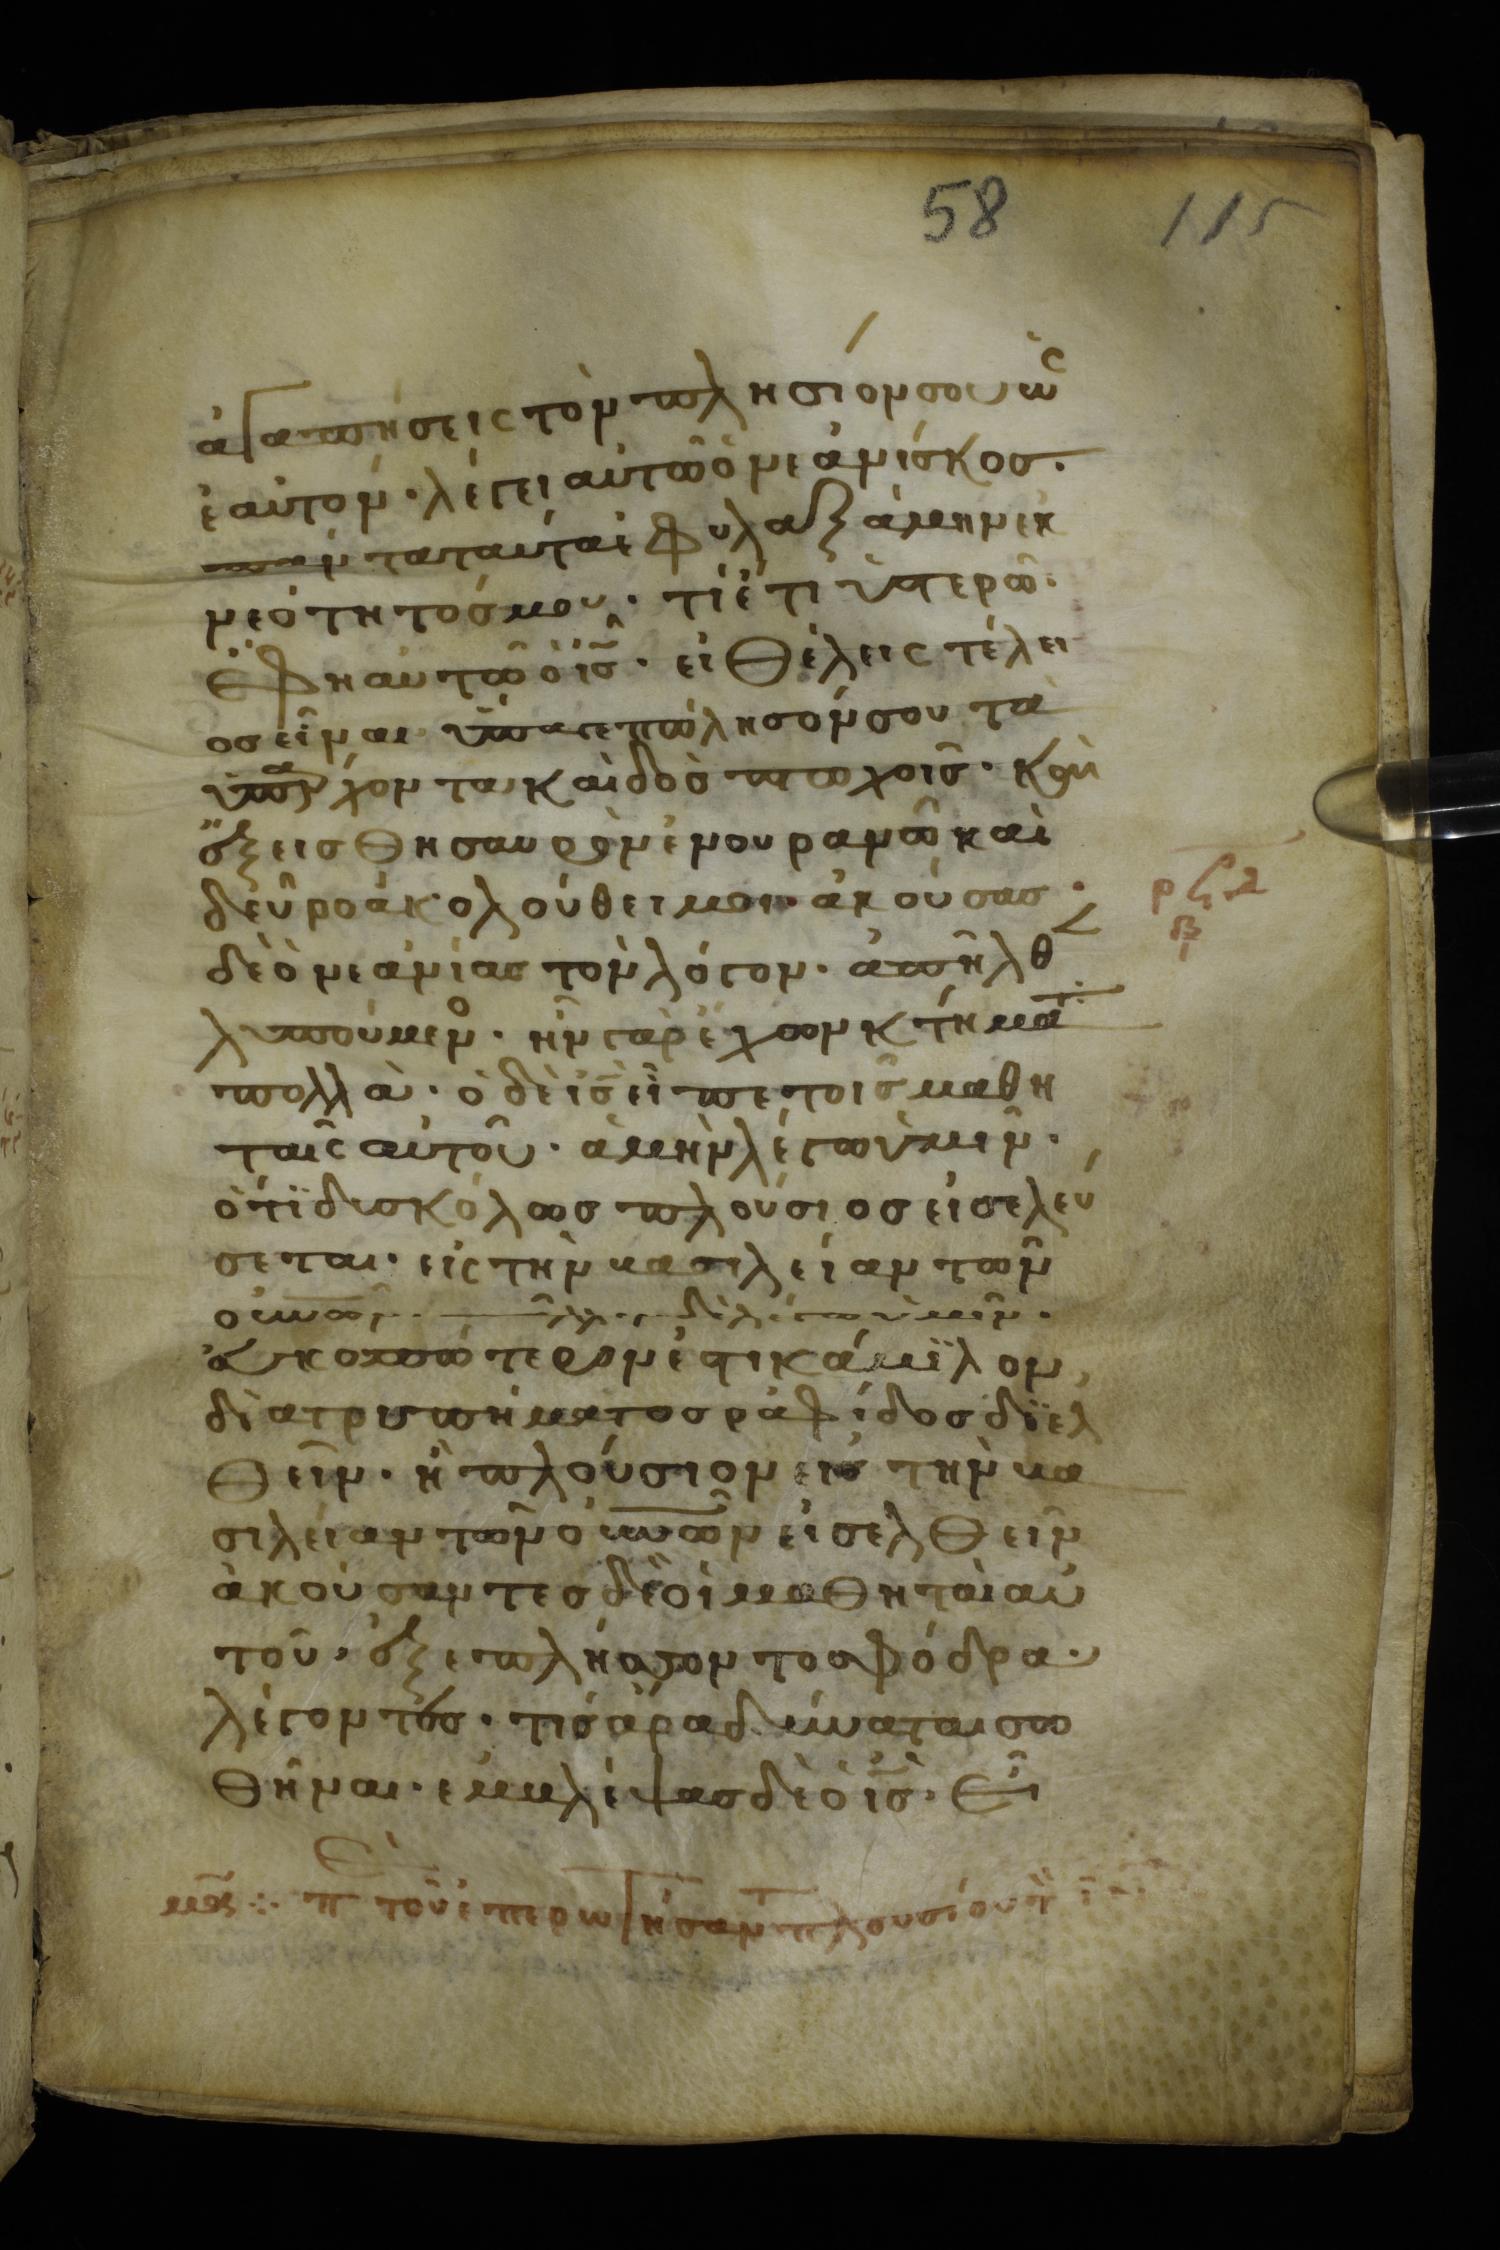 58 115
ἀγαπήσεις τὸν πλησίον σου ὡς
ἑαυτόν· λέγει αὐτῶ ὁ νεανίσκος·
πάντα ταύτα ἐφυλαξάμην ἐκ
νεότητός μου· τί ἔτι ὑστερῶ·
ἔφη αὐτῶ ὁ ις· εἰ θέλεις τέλει
ος εἶναι ὕπαγε πώλησόν σου τὰ
ὑπάρχοντα καὶ δὸς πτωχοῖς· καὶ
ἕξεις θησαυρὸν ἐν ουρανῶ καὶ
δεῦρο ἀκολούθει μοι· ἀκούσας
δὲ ὁ νεανίας τὸν λόγον· ἀπῆλθ
λυπούμενο· ἦν γὰρ ἔχων κτήματ
πολλά· ὁ δὲ ις εἶπε τοῖς μαθη
ταῖς αὐτοῦ· ἀμὴν λέγω ὑμιν·
ὅτι δυσκόλως πλούσιος εἰσελεύ
σεται· εἰς τὴν βασιλείαν τῶν
οὐνῶν· πάλιν δὲ λέγω ὑμῖν·
εὐκοπώτερον ἐστι κάμιλον
διὰ τρυπήματος ραφίδος διελ
θεῖν· ἢ πλούσιον εἰς τὴν βα
σιλείαν τῶν οὐνῶν εἰσελθεῖν
ἀκούσαντες δὲ οἱ μαθηταὶ αὐ
τοῦ· ἐξεπλήσσοντο σφόδρα·
λέγοντες· τίς ἄρα δύναται σω
θῆναι· ἐμβλέψας δὲ ὁ ις· εἶ
ρϟδ
β
τοῦ ἐπερωτήσαντ πλουσίου τ